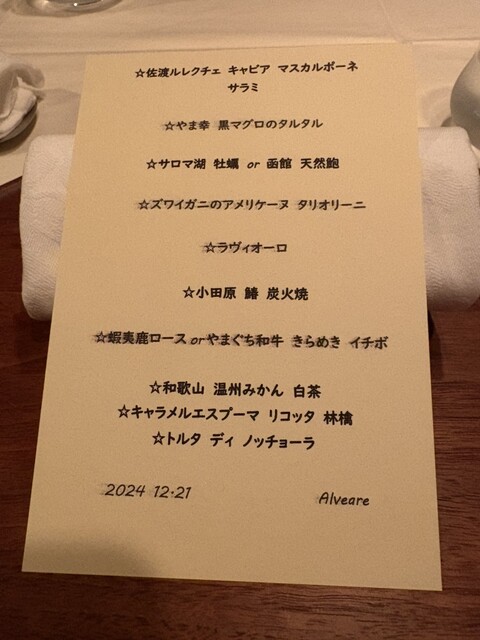 ☆佐渡ルレクチェ キャビア マスカルポーネ
サラミ
☆やま幸 黒マグロのタルタル
☆サロマ湖 牡蠣 or 函館 天然鮑
☆ズワイガニのアメリケーヌ タリオリーニ
☆ラヴィオーロ
☆小田原 鰆 炭火焼
☆蝦夷鹿ロース orやまぐち和牛 きらめき イチボ
☆和歌山 温州みかん 白茶
☆キャラメルエスプーマ リコッタ 林檎
☆トルタ ディ ノッチョーラ
2024 12・21
Alveare